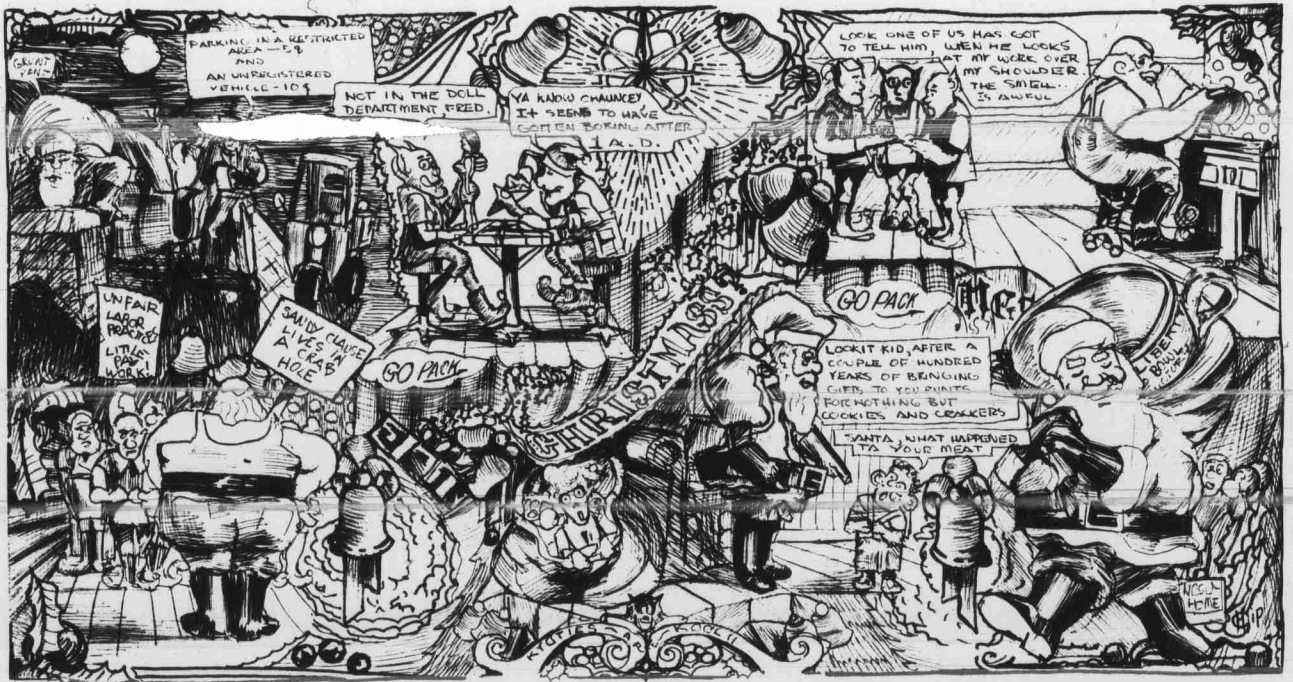 GRUNT
PANT
PARKING IN A RESTRICTED
AREA — 5¢
AND
AN UNREGISTERED
VEHICLE - 10¢
NOT IN THE DOLL
DEPARTMENT, FRED.
YA KNOW CHAUNCEY,
IT SEEMS TO HAVE
GOTTEN BORING AFTER
1 A.D.
LOOK ONE OF US HAS GOT
TO TELL HIM, WEN HE LOOKS
AT MY WORK OVER
MY SHOULDER
THE SMELL..
IS AWFUL
UNFAIR
LABOR
PRACTICE
LITLE
PAY
WORK!
SANDY CLAUSE
LIVES IN
A CRAB
HOLE
GO PACK
CHRISTMASS
GO PACK
LOOKIT KID, AFTER A
COUPLE OF HUNDRED
YEARS OF BRINGING
GIFTS TO YOU RUNTS
FOR NOTHING BUT
COOKIES AND CRACKERS
SANTA, WHAT HAPPENED
TO YOUR MEAT
LIBERTY
BOWL
NCSU
HOME